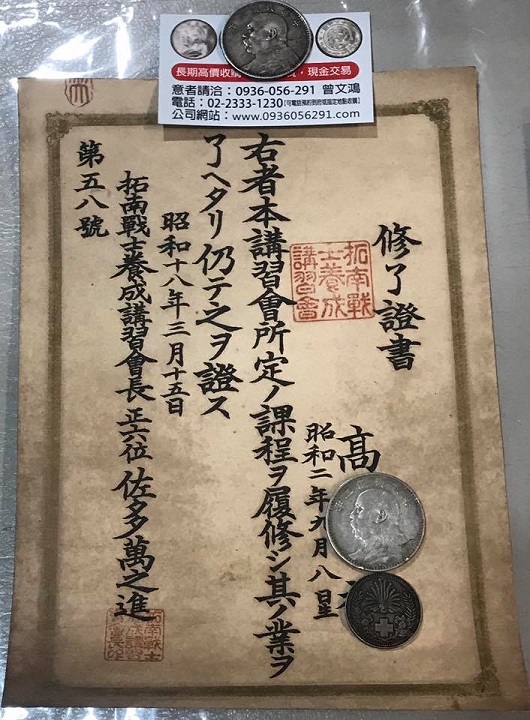 長期高價收購
現金交易
意者請洽：0936-056-291 曾文鴻
電話：02-2333-1230
公司網站：www.0936056291.com
修了證書
拓南戰
士養成
講習會
高
昭和二年九月八日生
右者本講習會所定ノ課程ヲ履修シ其ノ業ヲ
了ヘタリ仍テ之ヲ證ス
昭和十八年三月十五日
拓南戰士養成講習會長 正六位 佐多萬之進
第五八號